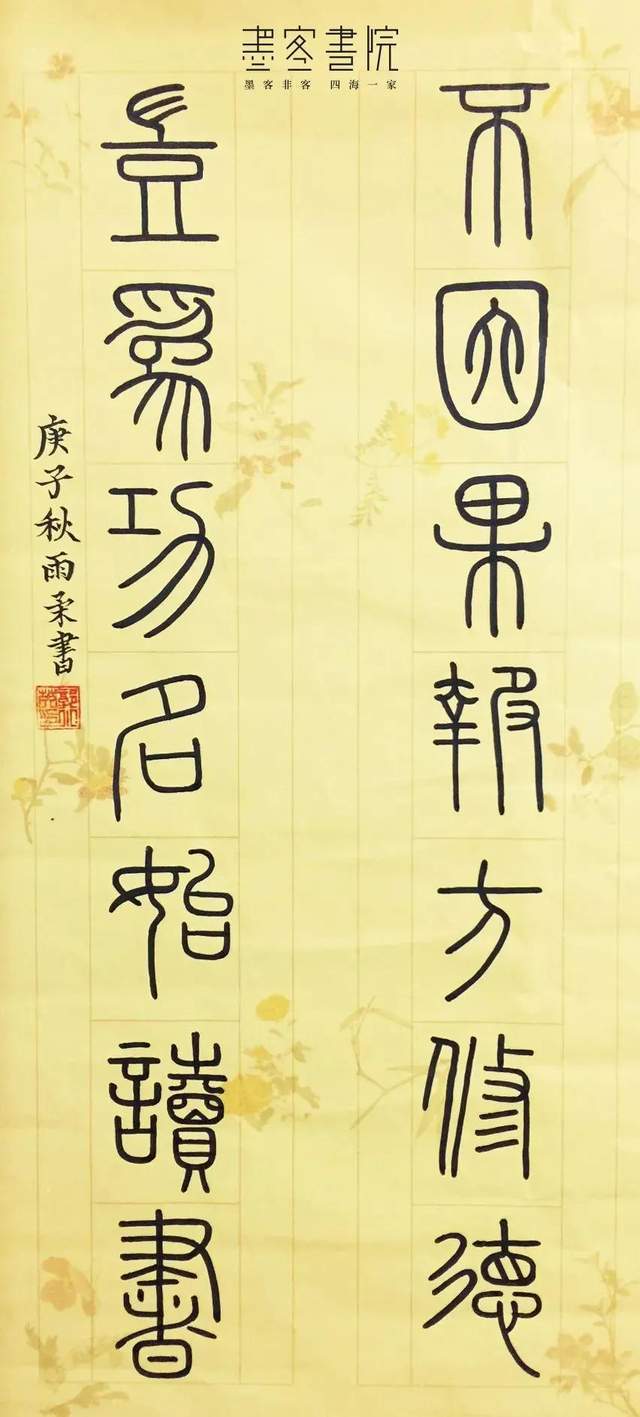 墨客書院
墨客非客 四海一家
不因果報方修德
豈爲功名始讀書
庚子秋雨柔書